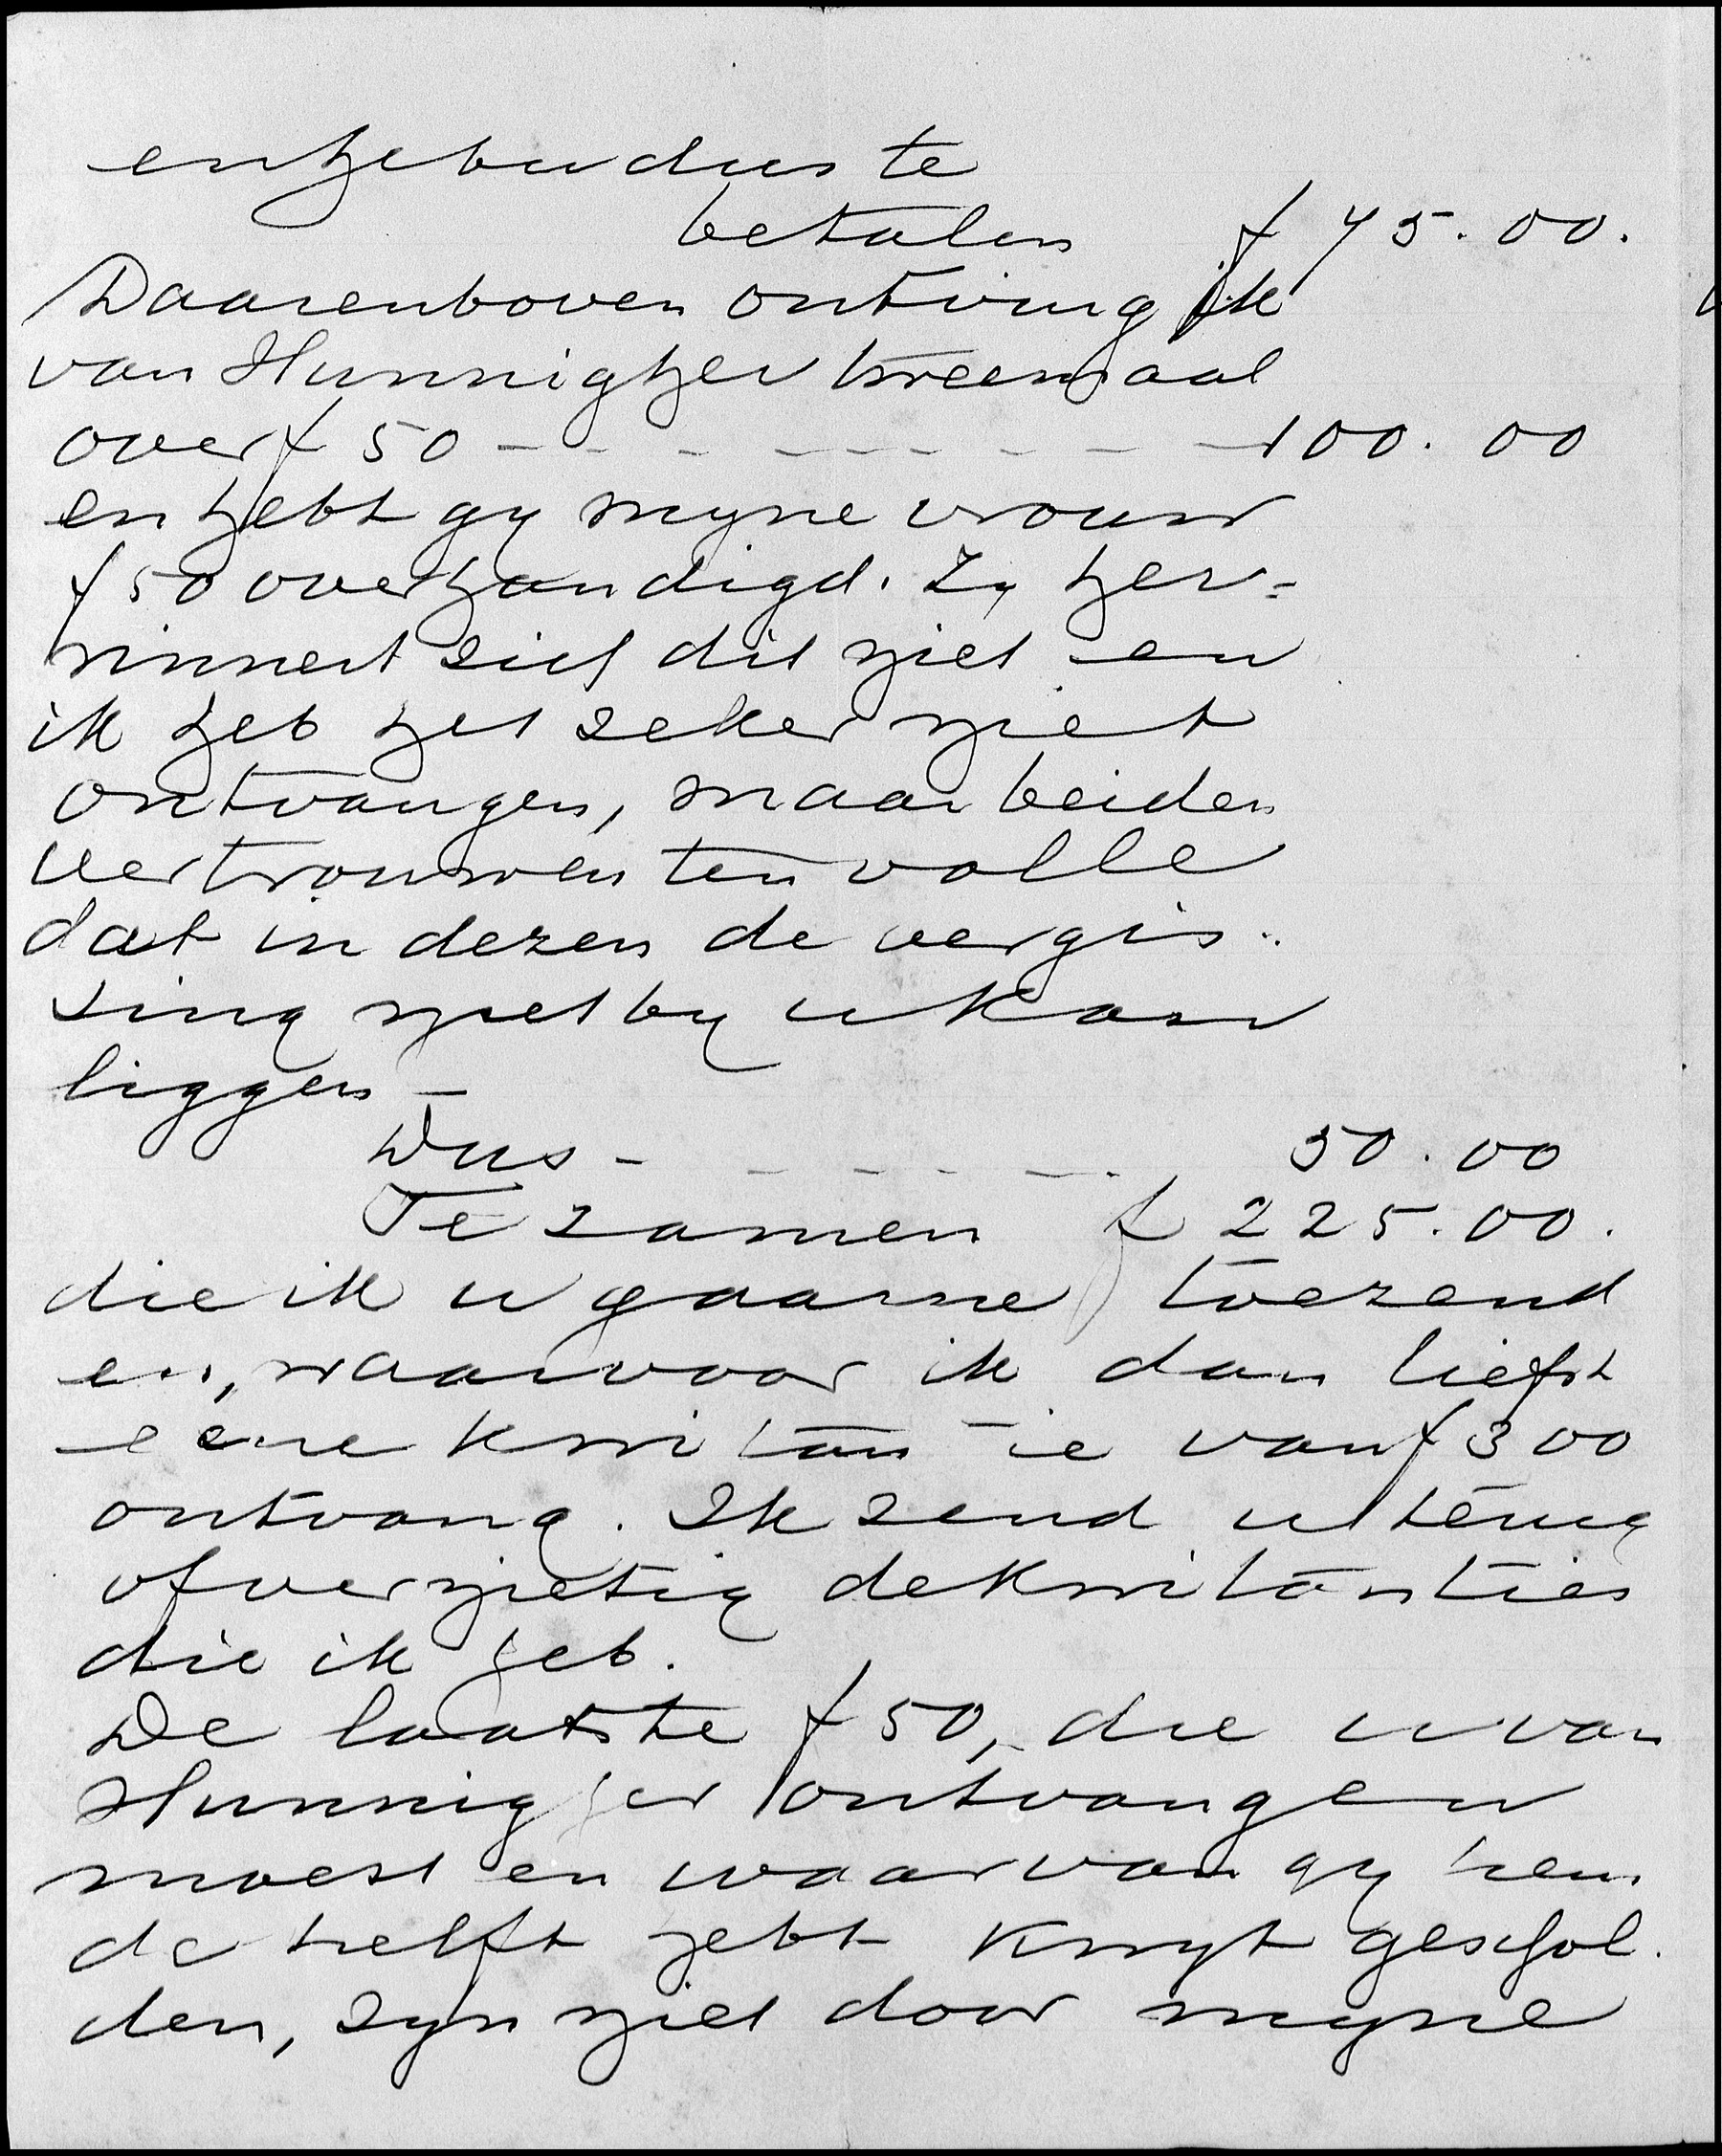 en heb u dus te
betalen f 75.00.
Daarenboven ontving ik
van Hunnigher tweemaal
over f 50 - - - - - - - - - 100.00
en hebt gy myne vrouw
f 50 overhandigd. Zy her-
innert zich dit niet en
ik heb het zeker niet
ontvangen, maar beiden
vertrouwen ten volle
dat in dezen de vergis-
sing niet by u kan
liggen -
Dus - - - - - - 50.00
Te zamen f 225.00.
die ik u gaarne toezend
en, waarvoor ik dan liefst
eene kwitantie van f 300
ontvang. Ik zend u terug
of vernietig de kwitanties
die ik heb.
De laatste f 50, die u van
Hunnigher ontvangen
moest en waarvan gy hem
de helft hebt kwyt geschol-
den, zyn niet door myne